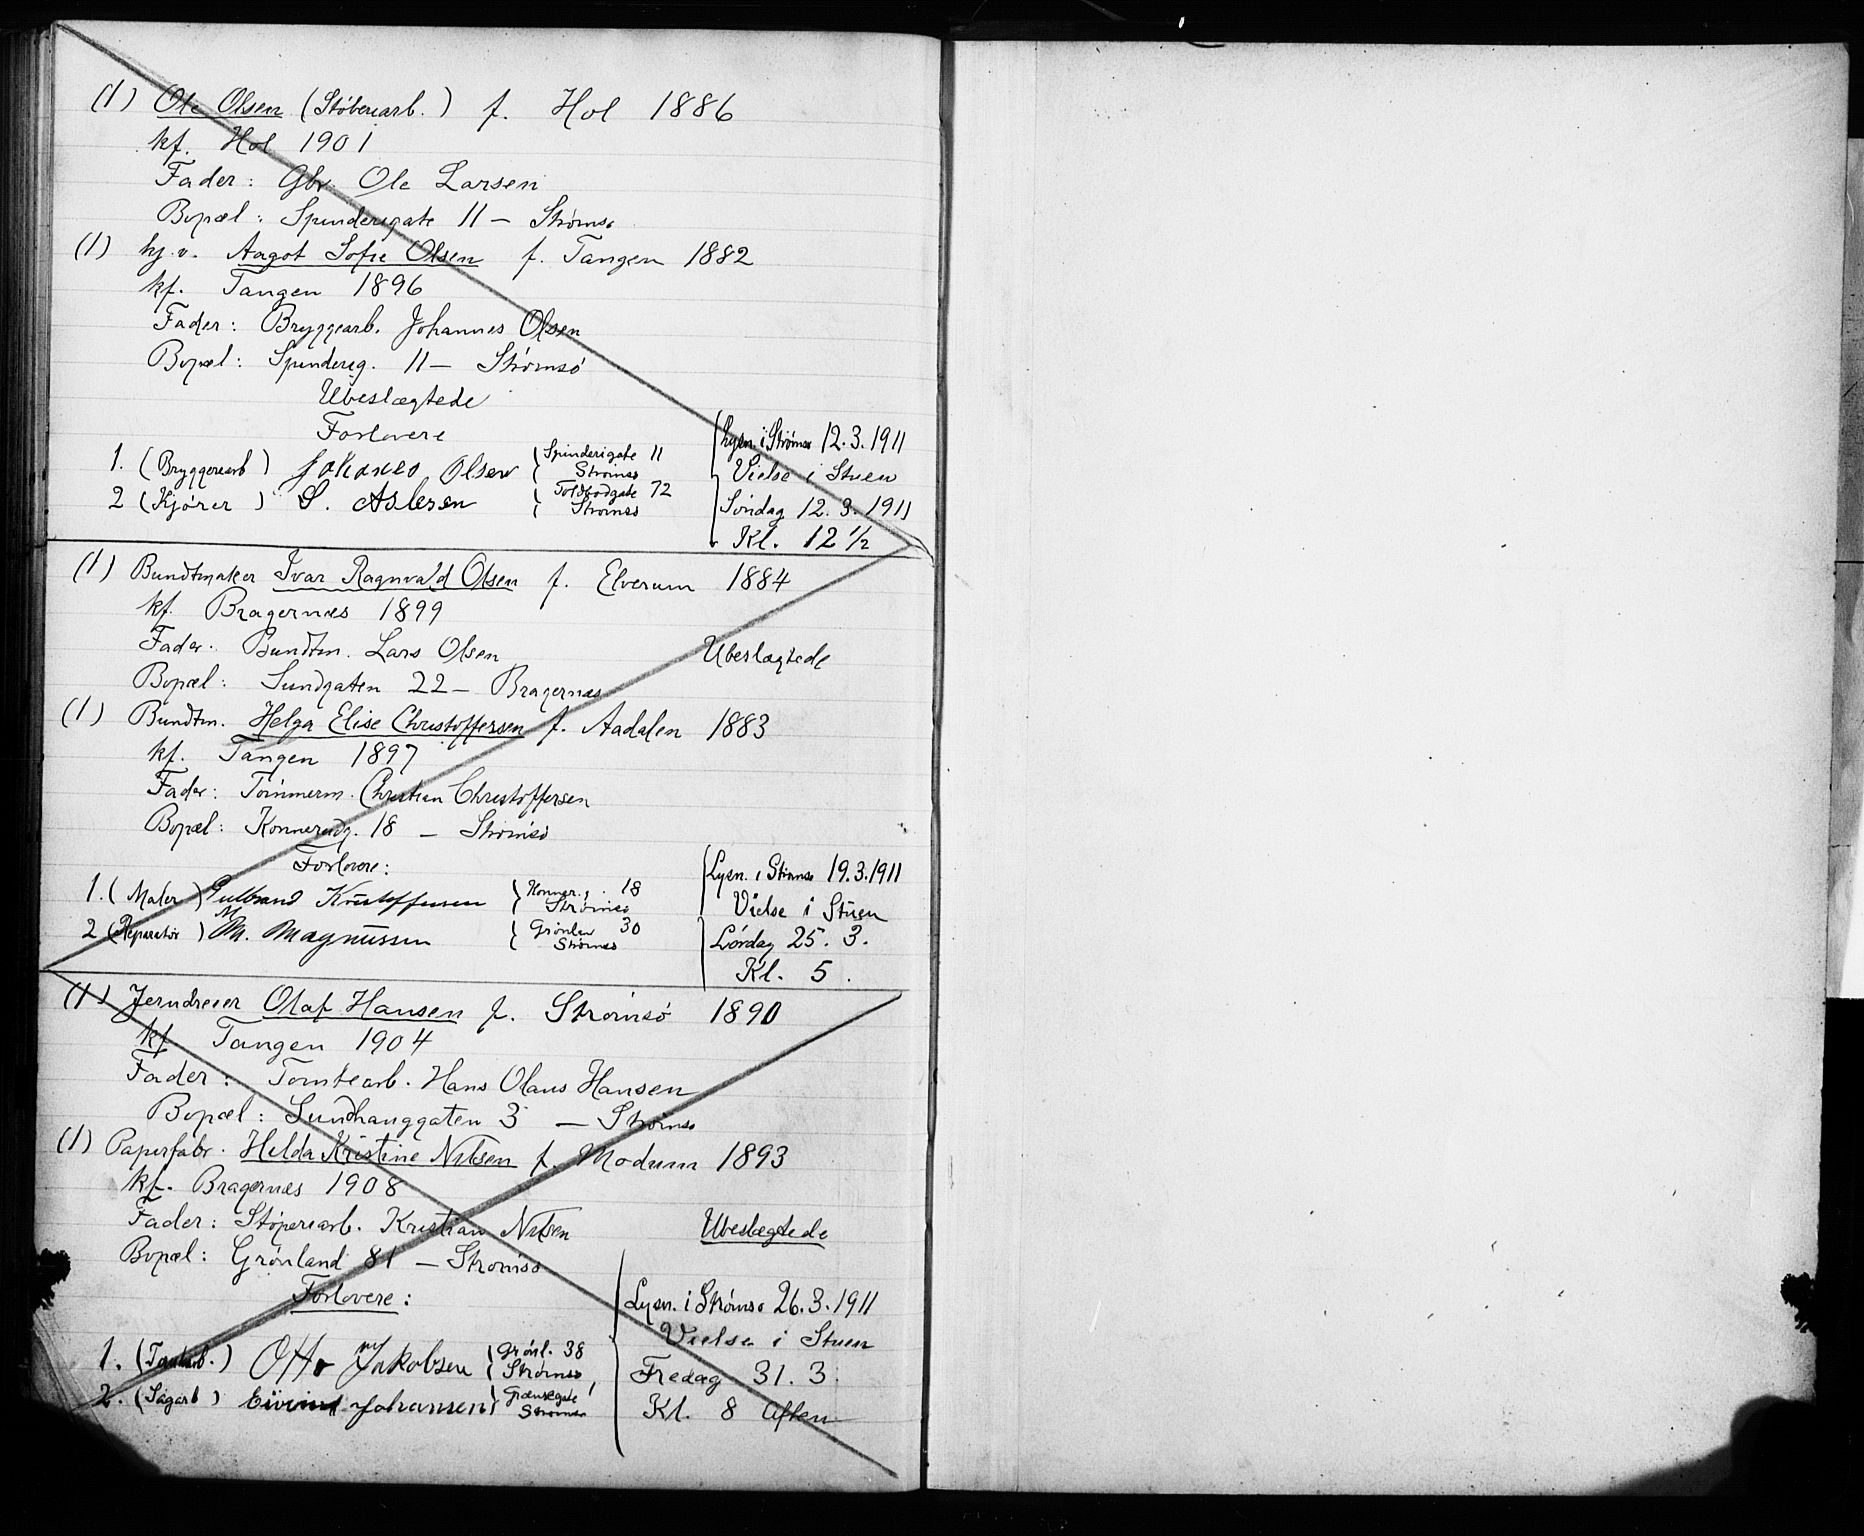 (1) Ole Olsen (Støberiarb.) f. Hol 1886
kf. Hol 1901
Fader: Gbr Ole Larsen
Bopæl: Spinderigate 11 – Strømsø
(1) hj.v. Aagot Sofie Olsen f. Tangen 1882
kf. Tangen 1896
Fader: Bryggearb. Johannes Olsen
Bopæl: Spinderig. 11 – Strømsø
Ubeslægtede
Forlovere
1. (Bryggerarb) Johanes Olsen Spinderigate 11 Strømsø
2 (Kjører) S. Aslesen Toldbodgate 72 Strømsø
Lysn. i Strømsø 12.3.1911
Vielse i Stuen
Søndag 12.3.1911
Kl. 12 ½
(1) Bundtmaker Ivar Ragnvald Olsen f. Elverum 1884
kf. Bragernæs 1899
Fader: Bundtm. Lars Olsen
Ubeslægtede
Bopæl: Sundgaten 22 – Bragernæs
(1) Bundtm. Helga Elise Christoffersen f. Aadalen 1883
kf. Tangen 1897
Fader: Tømmerm. Christian Christoffersen
Bopæl: Konnerudg. 18 – Strømsø
Forlovere:
1. (Maler) Gulbrand Kristoffersen Konner.g. 18 Strømsø
2 (Reparatør) M. Magnussen Grønland 30 Strømsø
Lysn. i Strømsø 19.3.1911
Vielse i Stuen
Lørdag 25. 3.
Kl. 5.
(1) Jerndreier Olaf Hansen f. Strømsø 1890
kf Tangen 1904
Fader: Tomtearb. Hans Olaus Hansen
Bopæl: Sundhauggaten 3 – Strømsø
(1) Papirfabr. Hilda Kristine Nilsen f. Modum 1893
kf. Bragernæs 1908
Fader: Støperiarb. Kristian Nilsen
Ubeslægtede
Bopæl: Grønland 81 – Strømsø
Forlovere:
1. (Tomtarb.) Otto Jakobsen Grønl. 38 Strømsø
2. (Sagarb) Eivind Johansen Grænsegate 1 Strømsø
Lysn. i Strømsø 26.3.1911
Vielse i Stuen
Fredag 31. 3.
Kl. 8 Aften